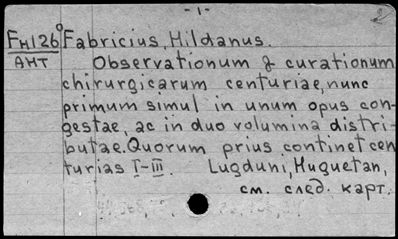 - 1 -
2
Fm126° Fabricius, Hildanus.
АНТ Observationum & curationum
chirurgicarum centuriae, nunc
primum simul in unum opus con-
gestae, ac in duo volumina distri-
butae. Quorum prius continet cen
turias I-III. Lugduni, Huguetan,
см. след. карт.